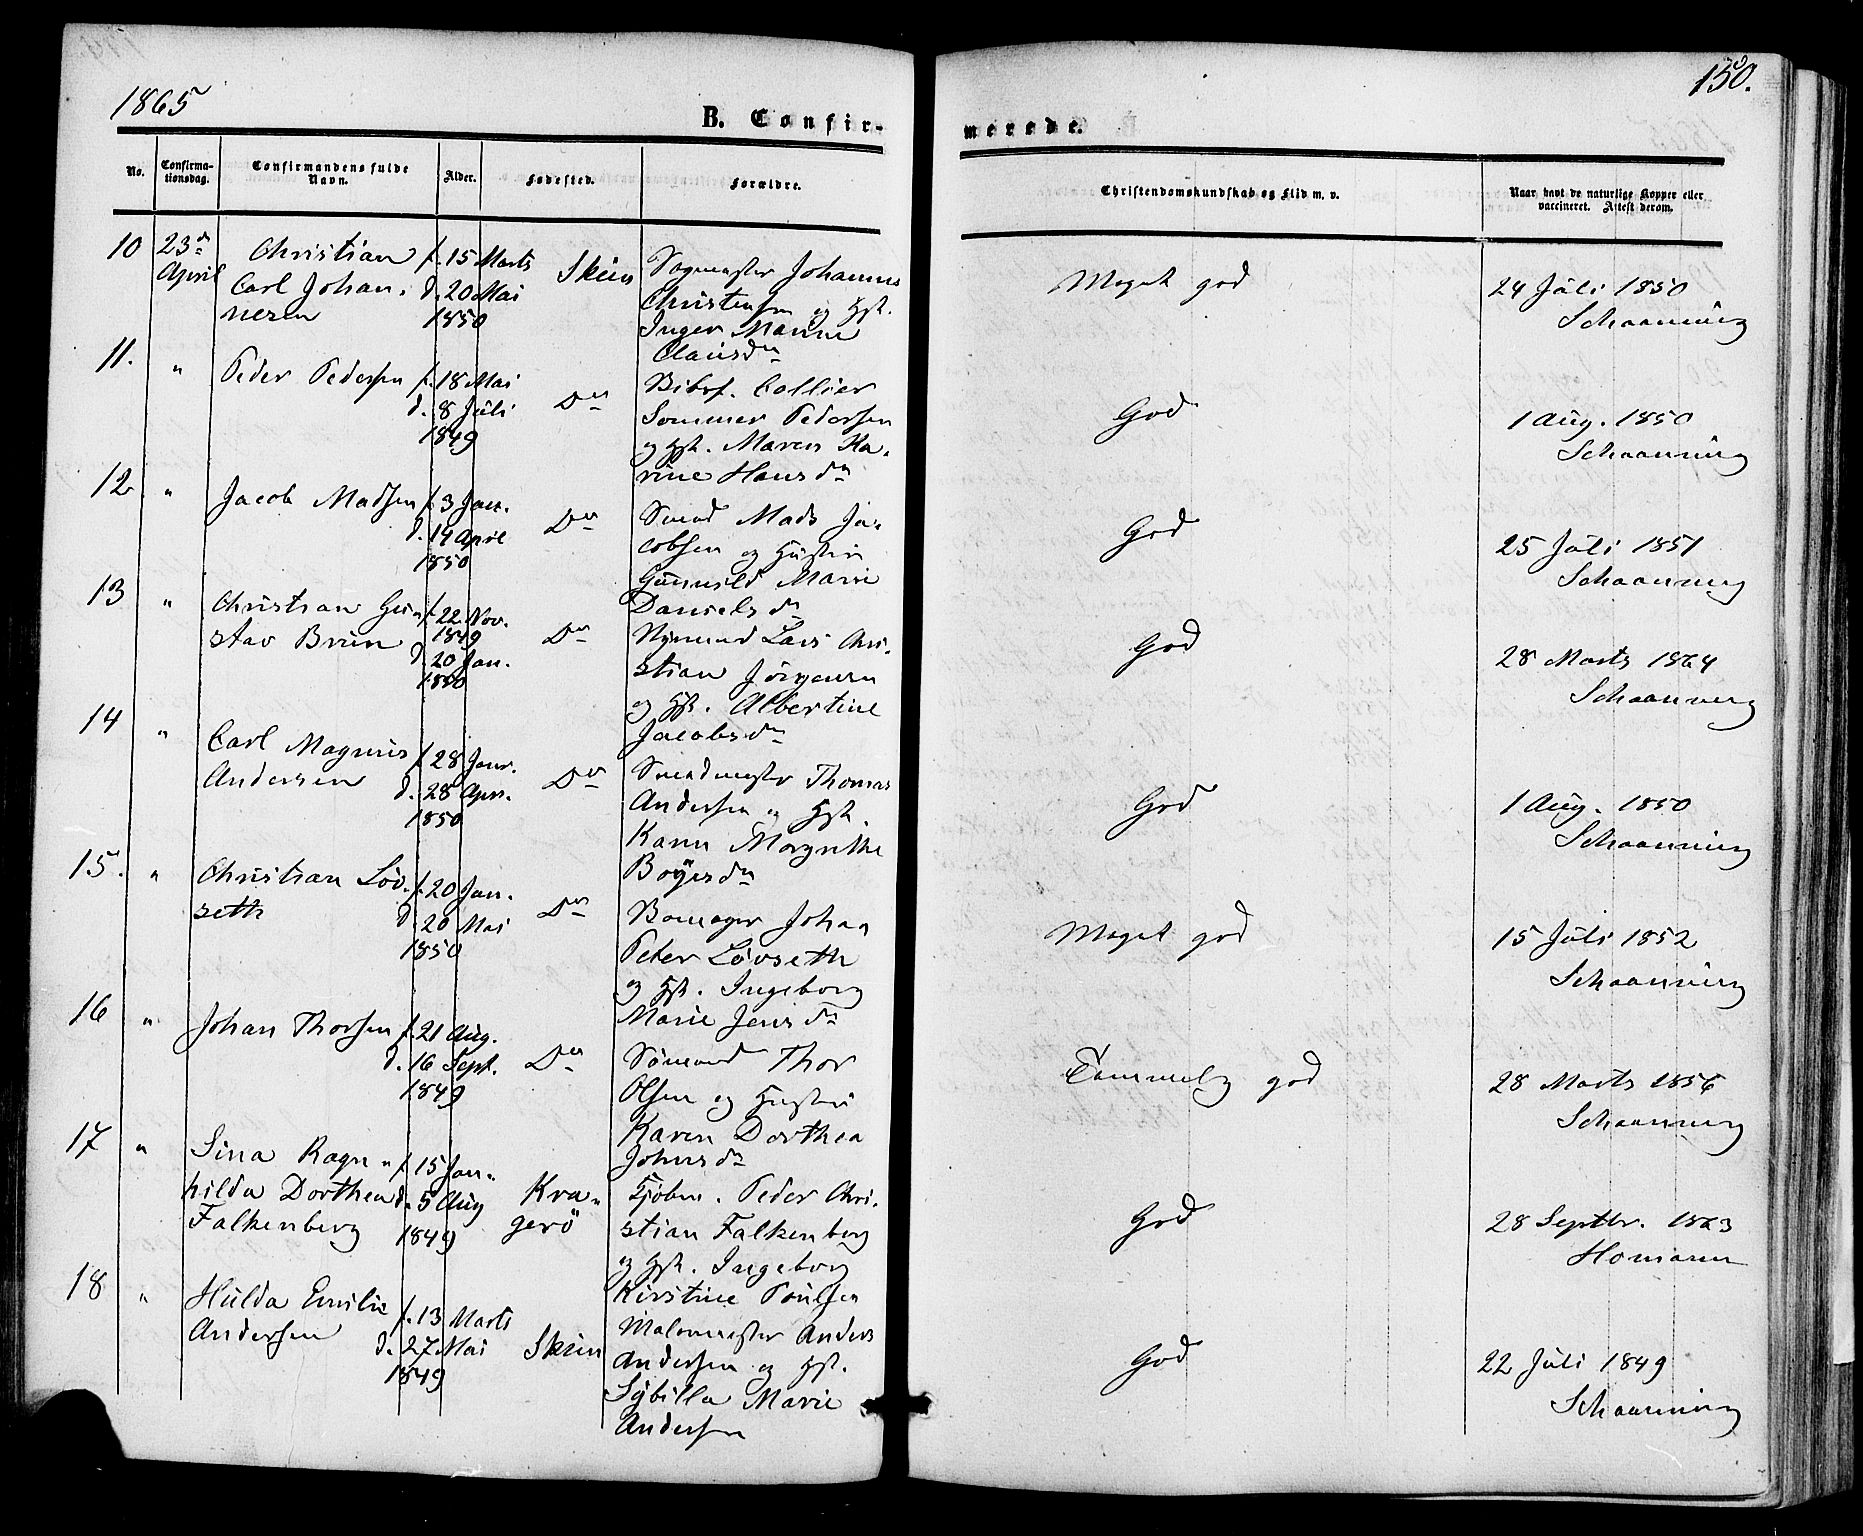 1865
150.
B. Confir-
merede.
No.
Confirma-
tionsdag.
Confirmandens fulde
Navn.
Alder.
Fødested.
Forældre.
Christendomskundskab og Flid m. v.
Naar havt de naturlige Kopper eller
vaccineret. Attest derom.
10 23de April
Christian
Carl Johan-
nesen
f. 15 Marts
d. 20 Mai
1850
Skien
Johannes
Christensen og Hst.
Inger Marine
Clausdn
Meget god
24 Juli 1850
Schaanning
11. "
Peder Pedersen
f. 18 Mai
d. 8 Juli
1849
Do
Collier
Sommer Pedersen
og Hst. Maren Ka-
rine Hansdn
God
1 Aug. 1850
Schaanning
12 "
Jacob Madsen
f. 3 Jan.
d. 14 April
1850
Do
Smed Mads Ja-
cobsen og Hustru
Gunnild Marie
Danielsdn
God
25 Juli 1851
Schaanning
13 "
Christian Gu-
stav Bruun
f. 22 Nov.
1849
d. 20 Jan.
1850
Do
Lars Chri-
stian Jörgensen
og Hst. Albertine
Jacobsdn
God
28 Marts 1864
Schaanning
14 "
Carl Magnus
Andersen
f. 28 Janr.
d. 28 Apr.
1850
Do
Smedmester Thomas
Andersen og Hst.
Karen Margrethe
Boyesdn
God
1 Aug. 1850
Schaanning
15. "
Christian Löv-
seth
f. 20 Jan.
d. 20 Mai
1850
Do
Johan
Peter Lövseth
og Hst. Ingeborg
Marie Jensdn
Meget god
15 Juli 1852
Schaanning
16 "
Johan Thorsen
f. 21 Aug.
d. 16 Sept.
1849
Do
Sömand Thor
Olsen og Hustru
Karen Dorthea
Johnsdn
Temmelig god
28 Marts 1856
Schaanning
17 "
Sina Ragn-
hilda Dorthea
Falkenberg
f. 15 Jan.
d. 5 Aug
1849
Kra-
gerö
Kjöbm. Peder Chri-
stian Falkenberg
og Hst. Ingeborg
Kirstine Poulsen
God
28 Septbr. 1863
Homann
18 "
Hulda Emilie
Andersen
f. 13 Marts
d. 27 Mai
1849
Skien
Malermester Anders
Andersen og Hst.
Sybilla Marie
Andersen
God
22 Juli 1849
Schaanning